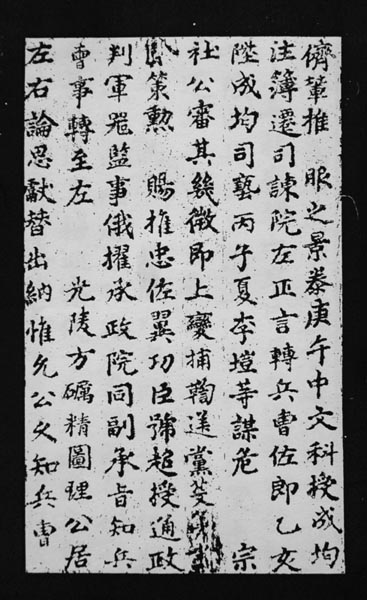 儕輩推服之景泰庚午中文科授成均
注簿遷司諫院左正言轉兵曹佐郎乙亥
陞成均司藝丙子夏李塏等謀危 宗
社公審其幾微即上變捕鞫逆黨芟
策勳 賜推忠佐翼功臣號超授通政
判軍器監事俄擢承政院同副承旨知兵
曹事轉至左 光陵方礪精圖理公居
左右論思獻替出納惟允公文知兵曹